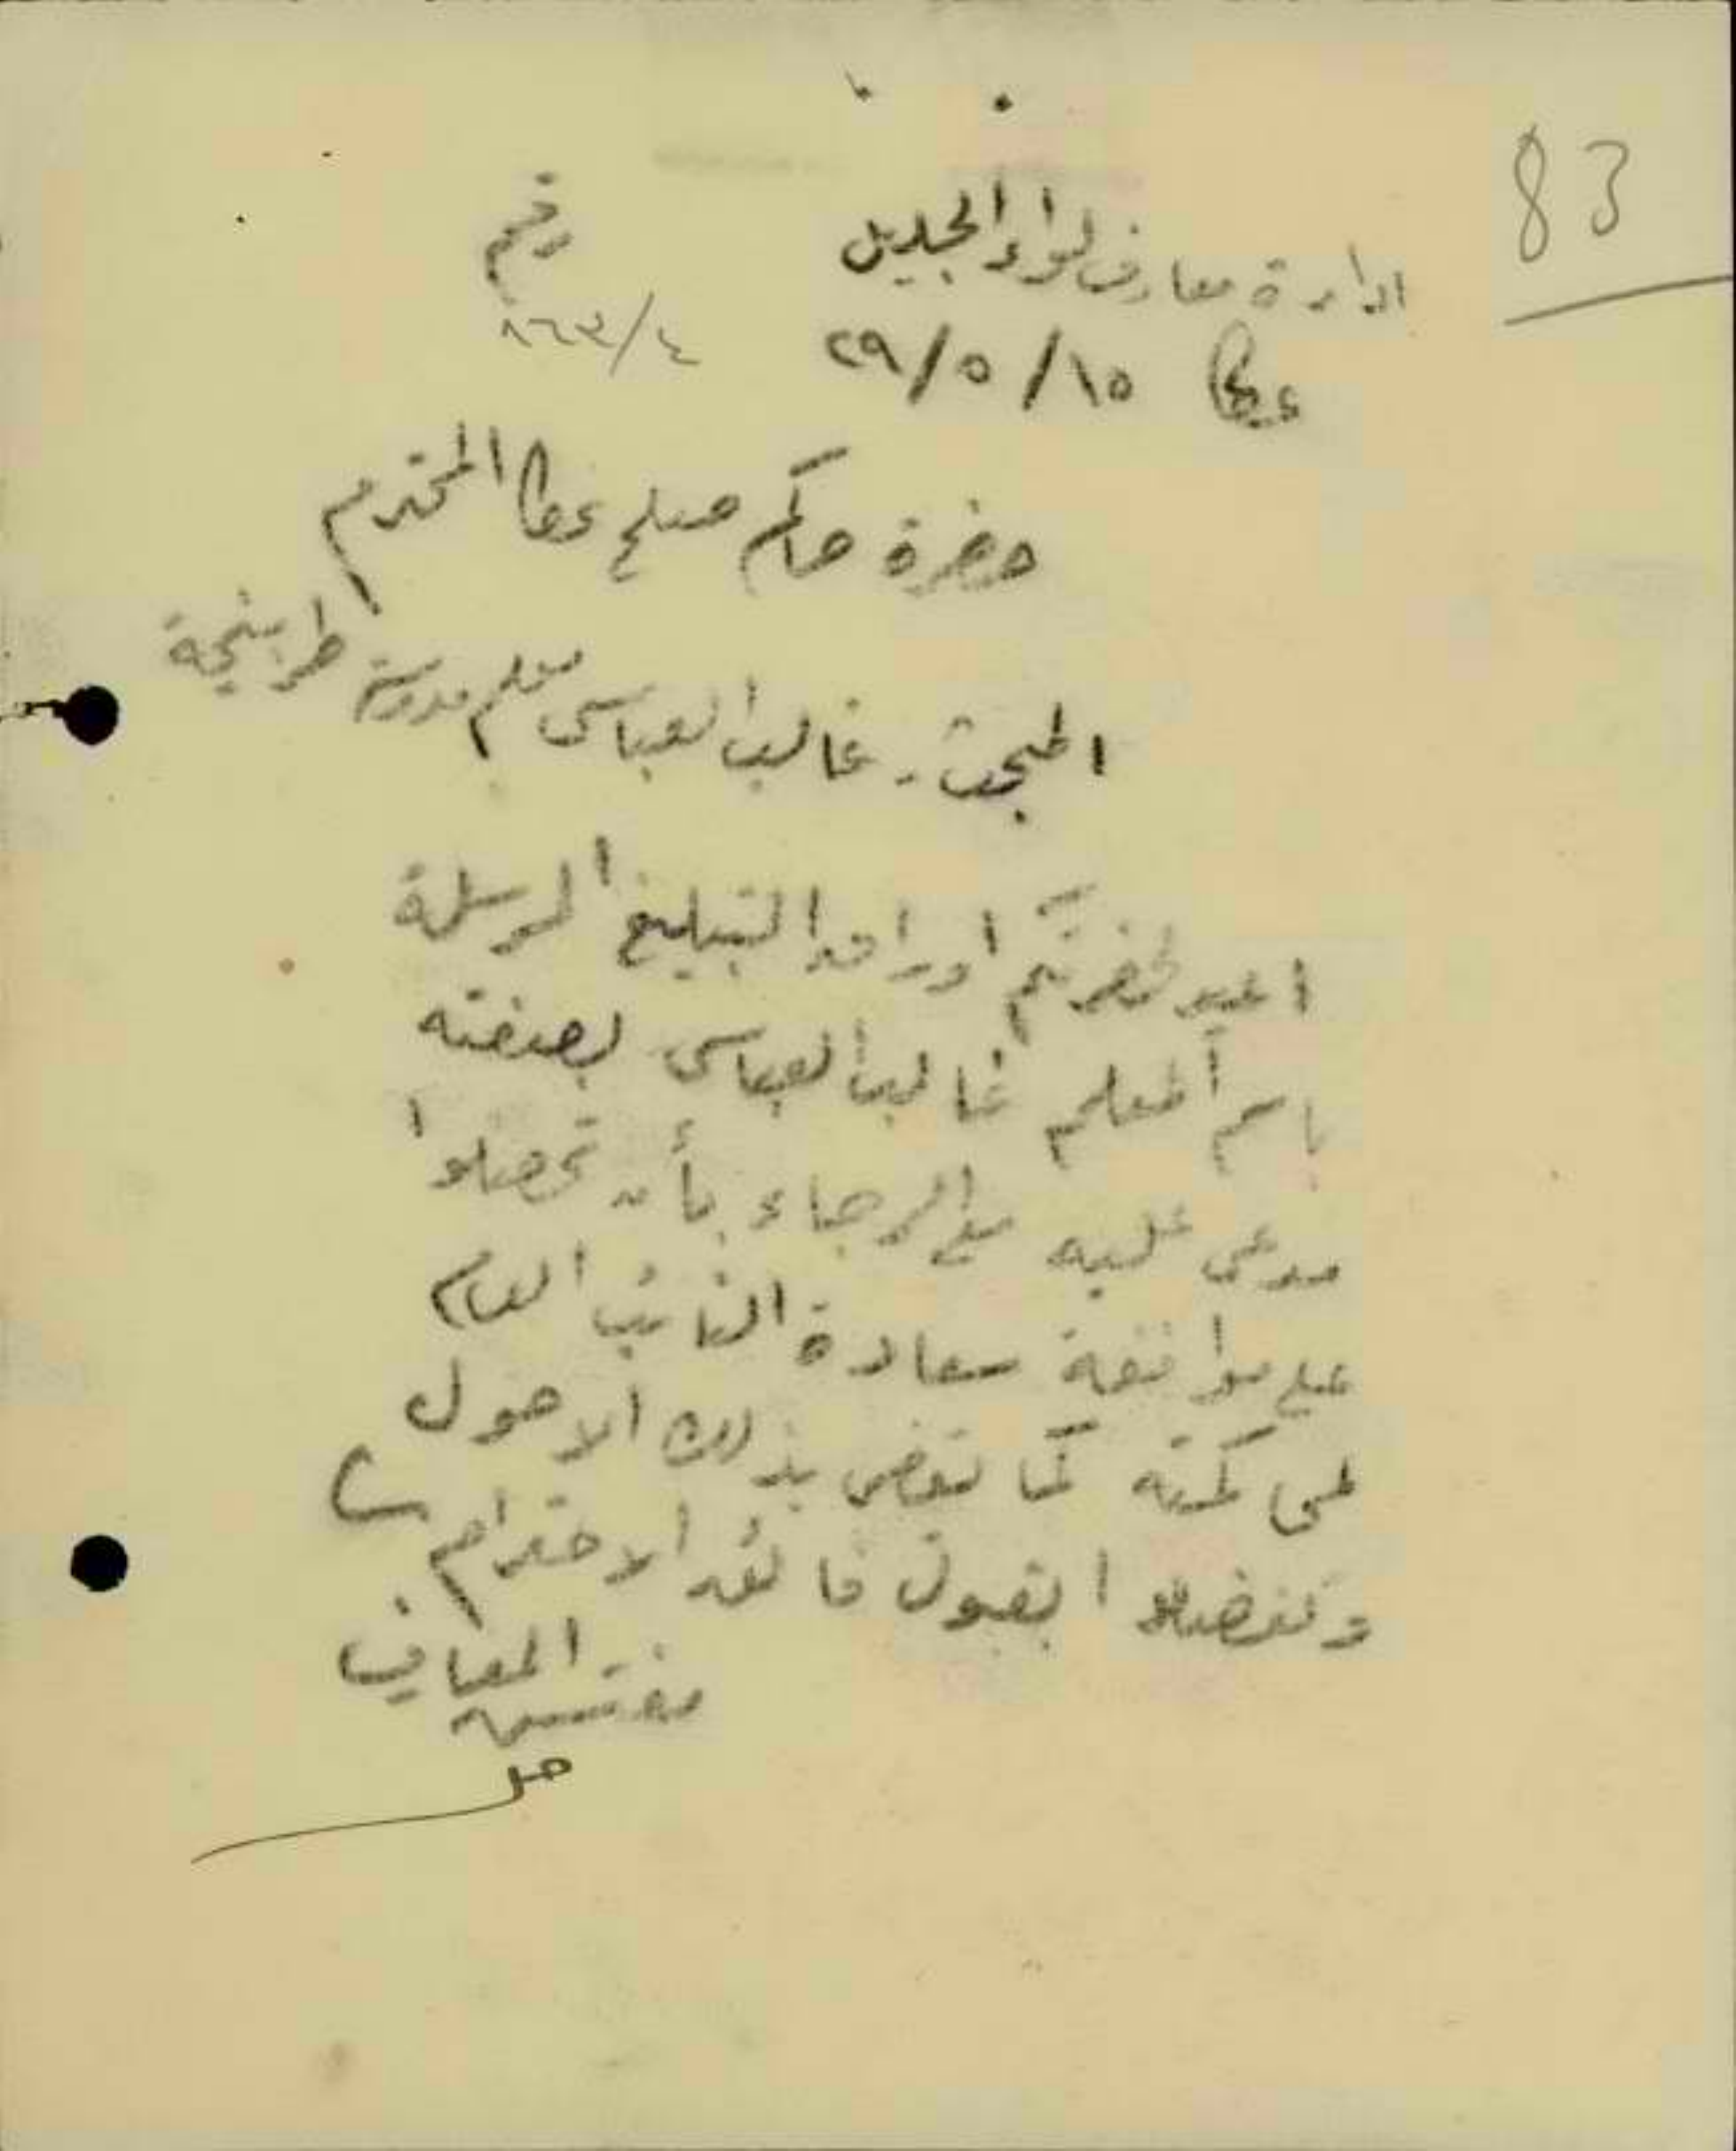 83
ادارة معارف لواء الجليل
رقم
عكا ١٥/٥/٢٩
٨٦٣/٤
حضرة حاكم صلح عكا المحترم
المبحث - غالب العباسي معلم مدرسة طربيخة
اعيد لحضرتكم اوراق التبليغ المرسلة
باسم المعلم غالب العباسي بصفته
مدعى عليه مع الرجاء بأن تحصلوا
على موافقة سعادة النائب العام
لمحاكمته كما تقضي بذلك الاصول
وتفضلوا بقبول فائق الاحترام
مفتش المعارف